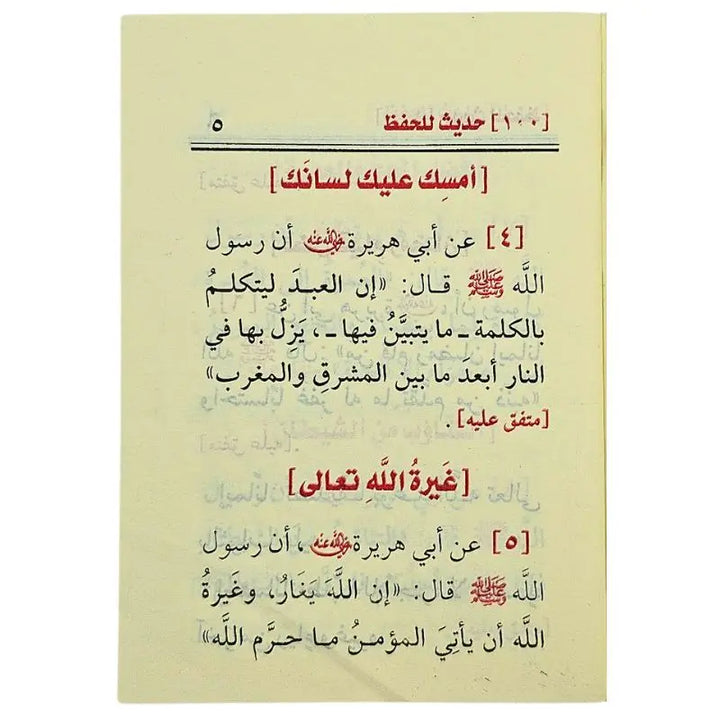 [١٠٠] حديث للحفظ ٥
[أمسِك عليك لسانَك]
[٤] عن أبي هريرة رضي الله عنه أن رسول
اللَّه ﷺ قال: «إن العبدَ ليتكلمُ
بالكلمة ـ ما يتبيَّنُ فيها ـ، يَزِلُّ بها في
النار أبعدَ ما بين المشرقِ والمغرب»
[متفق عليه].
[غَيرةُ اللَّهِ تعالى]
[٥] عن أبي هريرة رضي الله عنه، أن رسول
اللَّه ﷺ قال: «إن اللَّهَ يَغَارُ، وغَيرةُ
اللَّه أن يأتيَ المؤمنُ ما حرَّم اللَّه»